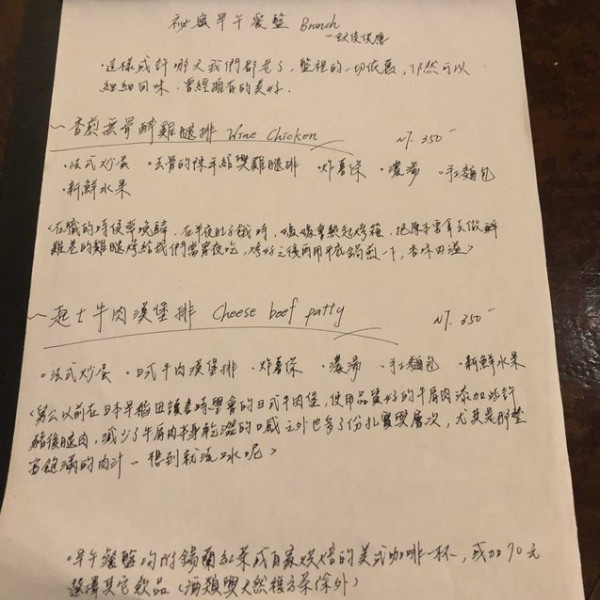 祕密早午餐盤 Brunch
－全天候供應
・這樣或許哪天我們都老了，盤裡的一切依舊，仍然可以
細細回味，曾經擁有的美好。
～香煎無骨醉雞腿排 Wine Chicken NT. 350-
・法式炒蛋 ・去骨的陳年紹興雞腿排 ・炸薯條 ・濃湯 ・手工麵包
・新鮮水果
的雞腿烤給我們當宵夜吃，烤好之後再用平底鍋煎一下，香味四溢>
～起士牛肉漢堡排 Cheese beef patty NT. 350-
・法式炒蛋 ・日式牛肉漢堡排 ・炸薯條 ・濃湯 ・手工麵包 ・新鮮水果
<舅公以前在日本早稻田讀書時學會的日式牛肉堡，使用品質好的牛肩肉添加些許
豬後腿肉，減少了牛肩肉本身乾澀的口感之外也多了份扎實與層次，尤其是那豐
富飽滿的肉汁－想到就流口水呢>
・早午餐盤均附錫蘭紅茶或自家烘焙的美式咖啡一杯，或加70元
選擇其它飲品（酒類與天然複方茶除外）